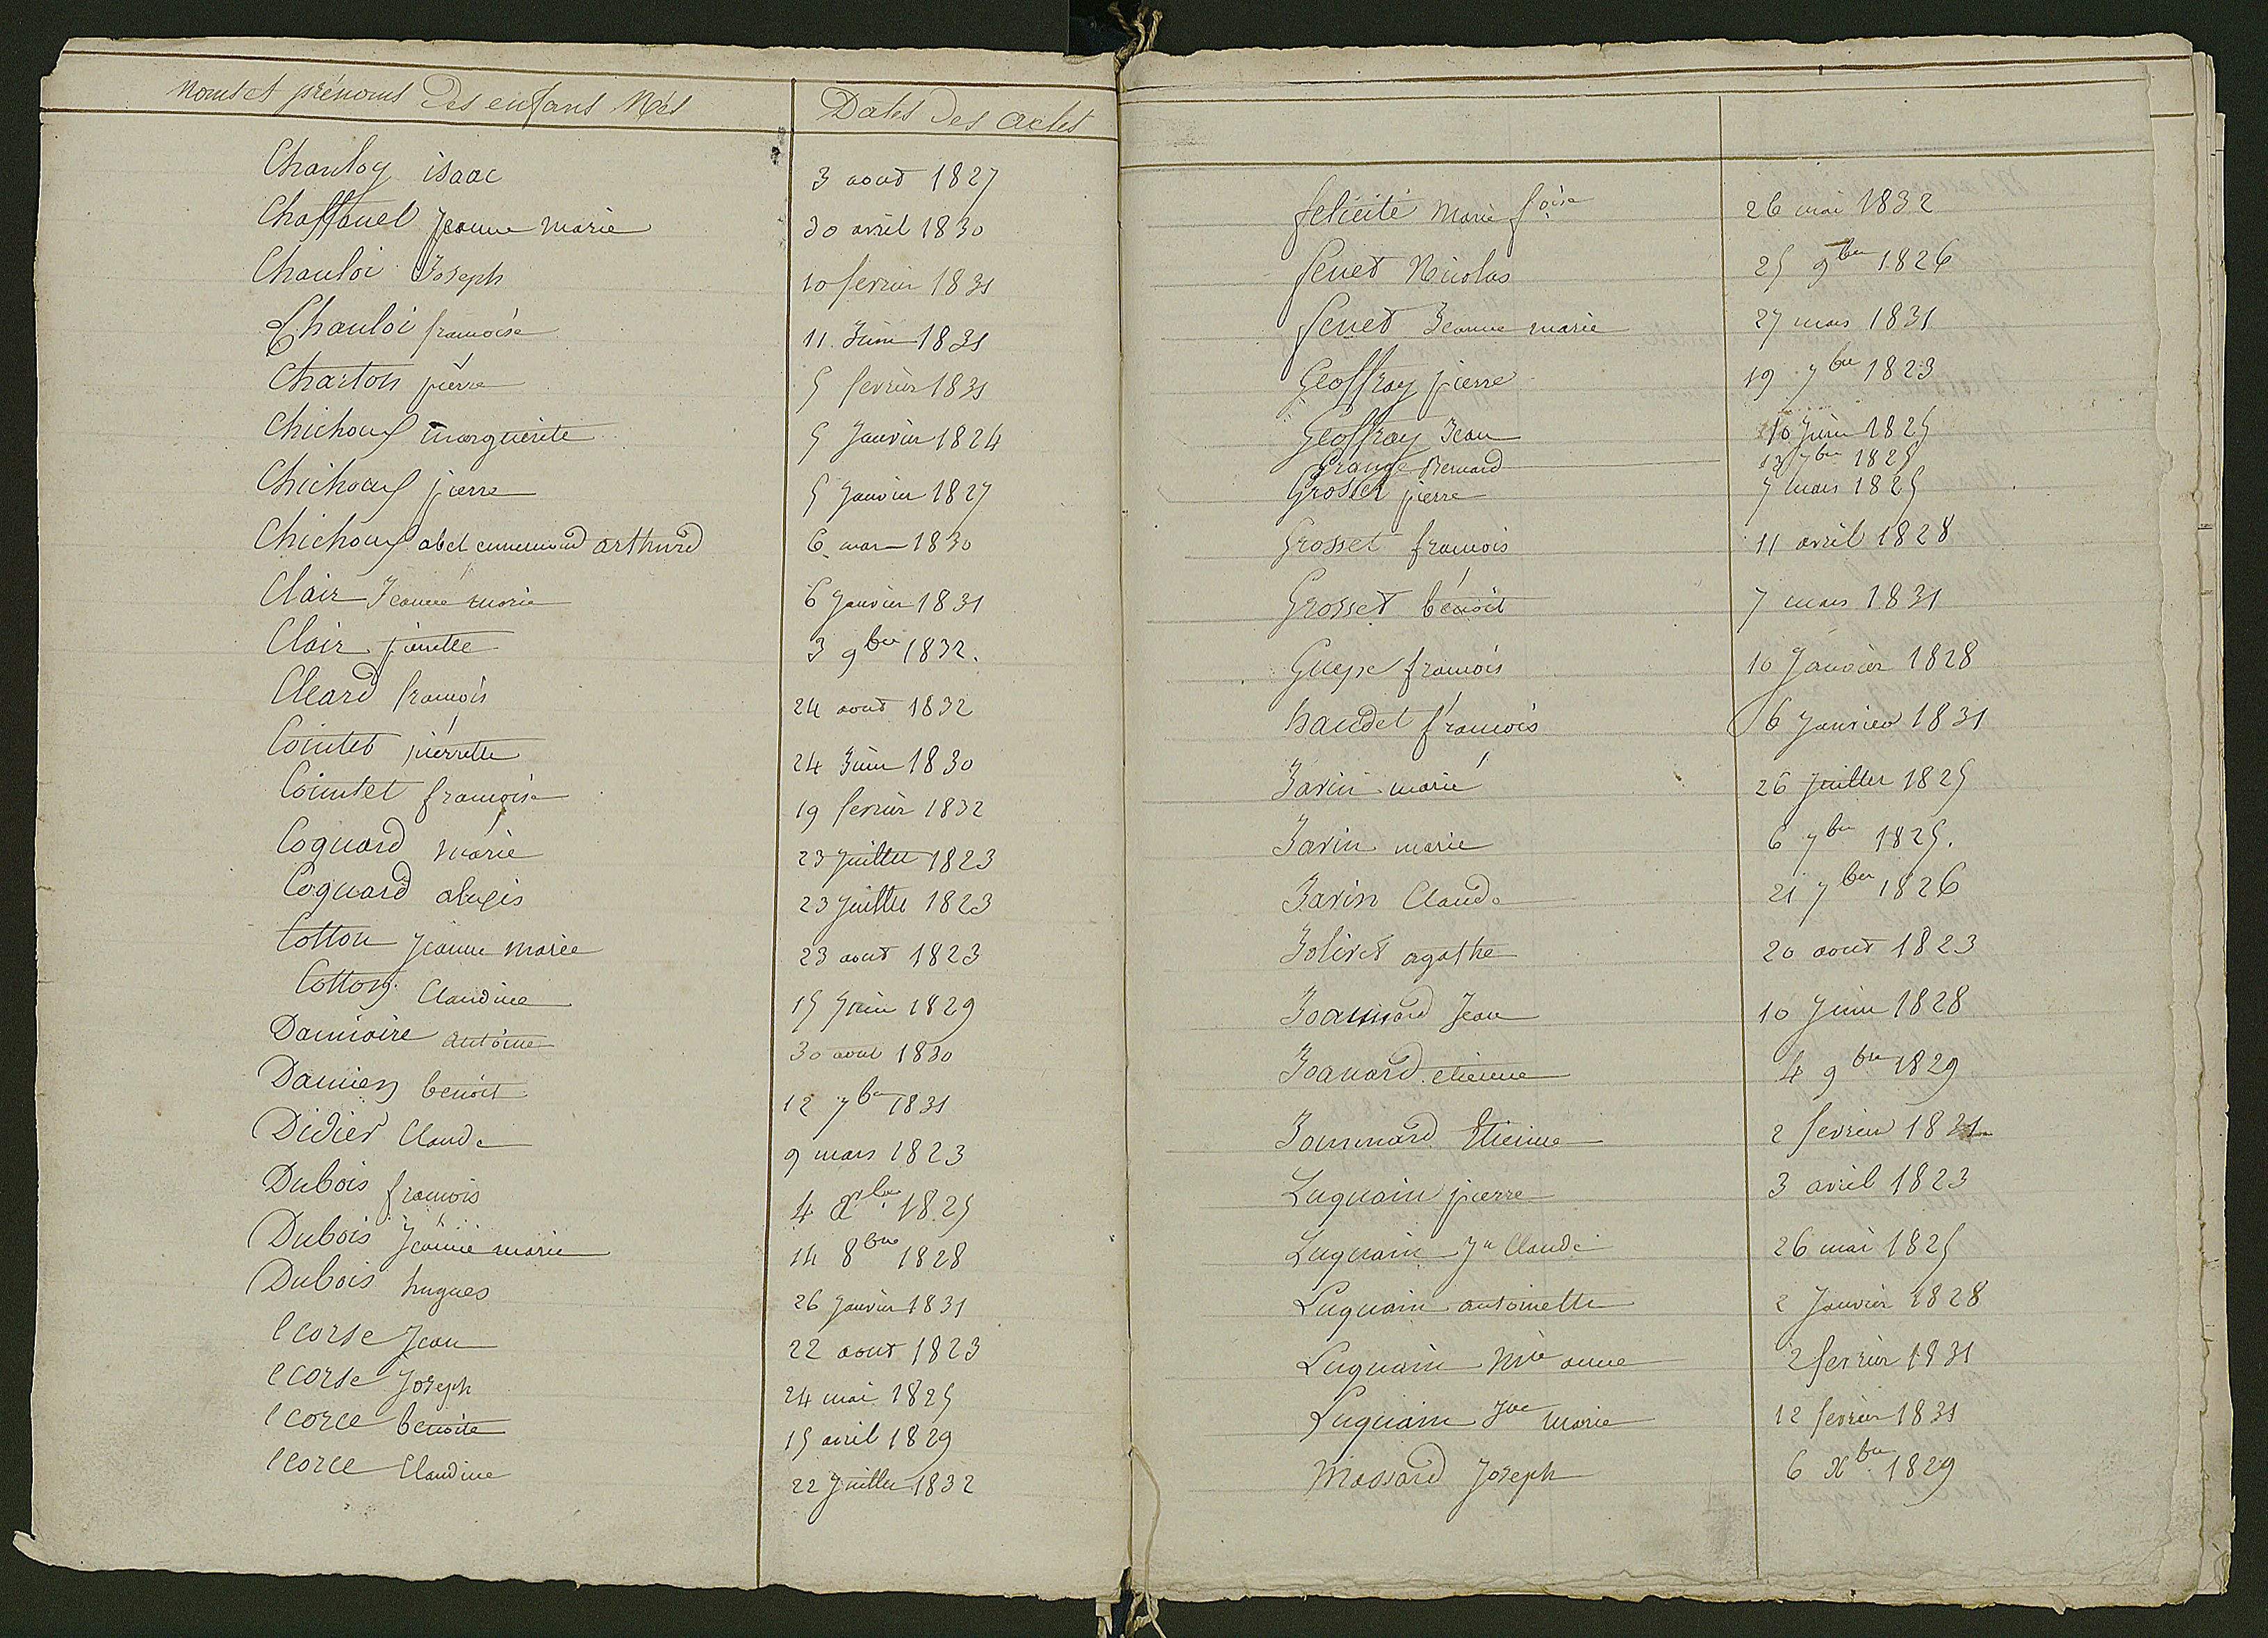 Noms et prénoms des enfans Nés Dates des actes
Chanloy isaac 3 aout 1827
Chaffanel Jeanne Marie 30 avril 1830
Chanloi Joseph 10 fevrier 1831
Chanloi francoise 11 Juin 1831
Charton pierre 5 fevrier 1831
Chichoux marguerite 5 Janvier 1824
Chichoux pierre 5 Janvier 1827
Chichoux abel ennemond arthurd 6 mars 1830
Clair Jeanne marie 6 Janvier 1831
Clair pierrette 3 9bre 1832.
Cleard francois 24 aout 1832
Cointet pierrette 24 Juin 1830
Cointet francoise 19 fevrier 1832
Coquard marie 23 Juillet 1823
Coquard alexis 23 Juillet 1823
Cotton Jeanne Marie 23 aout 1823
Cotton Claudine 15 Juin 1829
Damioire antoine 30 1830
Damien benoit 12 7bre 1831
Didier Claude 9 mars 1823
Dubois francois 4 Xbre 1825
Dubois Jeanne marie 14 8bre 1828
Dubois hugues 26 Janvier 1831
ecorse Jean 22 aout 1823
ecorse Joseph 24 mai 1825
ecorce benoite 15 avril 1829
ecorce Claudine 22 Juillet 1832
felicité Marie foise 26 mai 1832
fenet Nicolas 25 9bre 1826
fenet Jeanne marie 27 mars 1831
Geoffray pierre 19 7bre 1823
Geoffray Jean 10 Juin 1825
Grange Bernard 13 7bre 1825
Grosset pierre 7 mars 1825
Grosset francois 11 avril 1828
Grosset benoit 7 mars 1831
Guepe francois 10 Janvier 1828
haudet francois 6 Janvier 1831
Javin marie 26 Juillet 1825
Javin marie 6 7bre 1825.
Javin Claude 21 7bre 1826
Jolivet agathe 20 aout 1823
Joannard Jean 10 Juin 1828
Joanard etienne 4 9bre 1829
Jouannard Etienne 2 fevrier 1831
Luquain pierre 3 avril 1823
Luquain Jn Claude 26 mai 1825
Luquain antoinette 2 Janvier 1828
Luquain Mie anne 2 fevrier 1831
Luquain Jne Marie 12 fevrier 1831
Massard Joseph 6 Xbre 1829